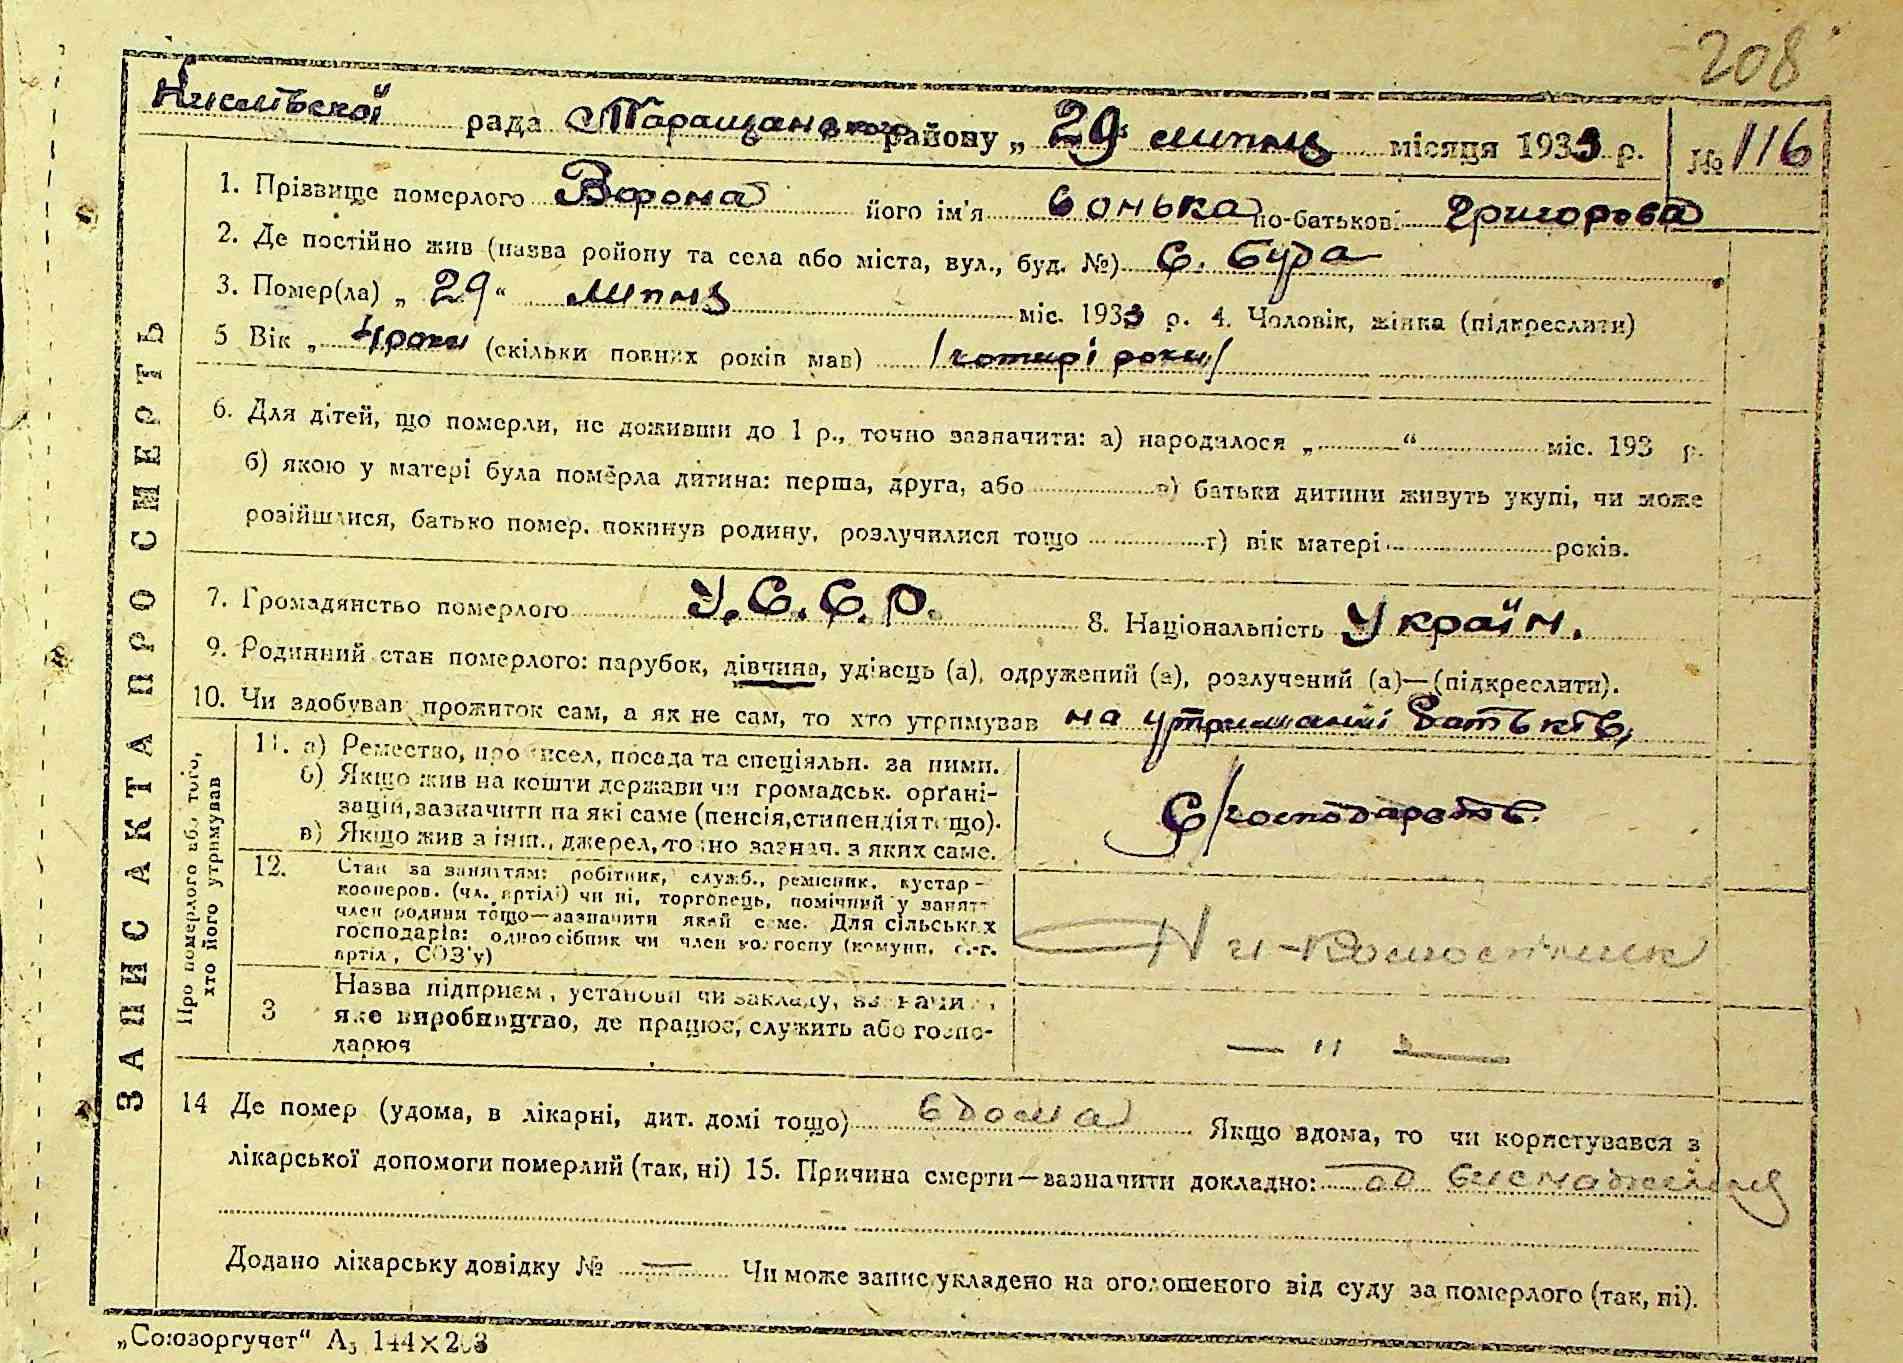 208
рада Таращанського району „ 29 липня місяця 1933 р. № 116
1. Прізвище померлого Ворона його ім'я Сонька по-батькові Григорова
2. Де постійно жив (назва ройону та села або міста, вул., буд. №) С. Буда
3. Помер(ла) „ 29 “ липня міс. 1933 р. 4. Чоловік, жінка (підкреслити)
5 Вік „ 4 роки (скільки повних років мав) /чотирі роки/
6. Для дітей, що померли, не доживши до 1 р., точно зазначити: а) народилося „ “ міс. 193 р.
б) якою у матері була померла дитина: перша, друга, або в) батьки дитини живуть укупі, чи може
розійшлися, батько помер. покинув родину, розлучилися тощо г) вік матері років.
7. Громадянство померлого У.С.С.Р. 8. Національність Україн.
9. Родинний стан померлого: парубок, дівчина, удівець (а), одружений (а), розлучений (а)—(підкреслити).
10. Чи здобував прожиток сам, а як не сам, то хто утримував на утриманні батьків,
ЗАПИС АКТА ПРО СМЕРТЬ
Про померлого або того,
хто його утримував
11. а) Ремество, промисел, посада та спеціяльн. за ними.
б) Якщо жив на кошти держави чи громадськ. орґані-
зацій, зазначити на які саме (пенсія, стипендія тощо).
в) Якщо жив з інш., джерел, точно зазнач. з яких саме.
С/господарств.
12. Стан за заняттям: робітник, служб., ремісник. кустар -
кооперов. (чл. артілі) чи ні, торговець, помічний у занятт
член родини тощо—зазначити який саме. Для сільських
господарів: одноосібник чи член колгоспу (комуни. с.-г.
артіл, СОЗ'у)
3 Назва підприєм, установи чи закладу, зазначи ,
яке виробництво, де працює, служить або госпо-
дарює
— " —
14 Де помер (удома, в лікарні, дит. домі тощо) вдома Якщо вдома, то чи користувався з
лікарської допомоги померлий (так, ні) 15. Причина смерти—зазначити докладно: од виснаження
Додано лікарську довідку № — Чи може запис укладено на оголошеного від суду за померлого (так, ні).
„Союзоргучет“ А₅ 144×203